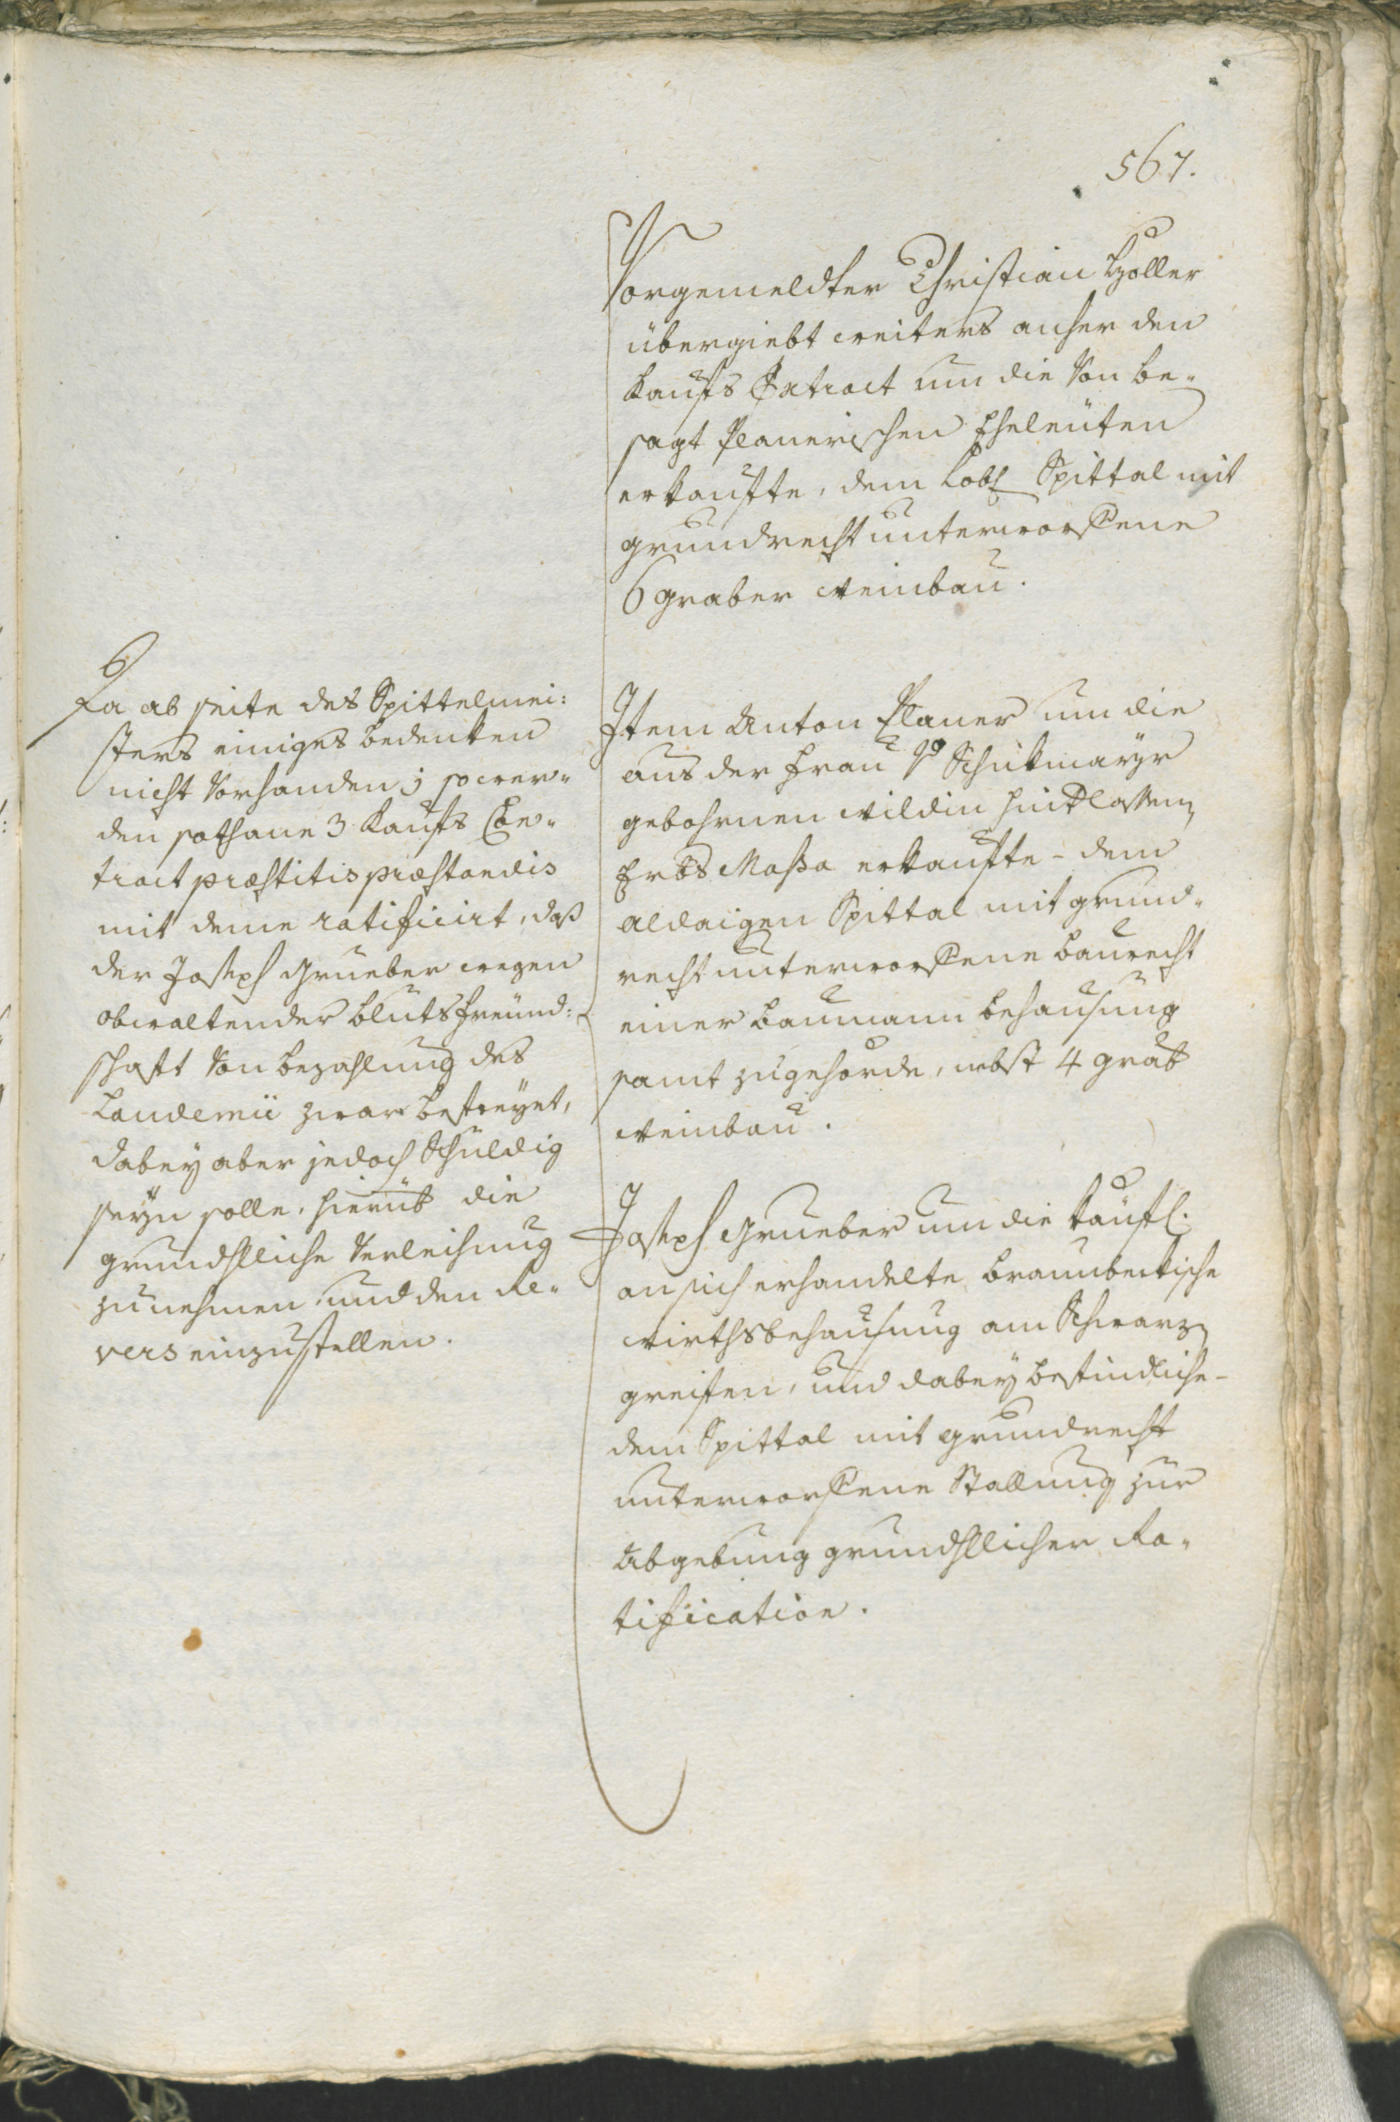 567.
Vorgemeldter Christian Holler
übergiebt weiters anher den
Kaufs Extract um die von be-
sagt Planerischen Eheleüten
erkaufte, dem Lobl Spittal mit
grundrecht unterworfene
6 graber Weinbau.
Item Anton Planer um die
aus der Frau v Schükmaÿr
gebohrnen Wildin hintlassen
Erbs Massa erkaufte - dem
aldaigen Spittal mit grund-
recht unterworfene Baurecht
einer Baumann behausung
samt zugehörde, nebst 4 grab
Weinbau.
Joseph Grueber um die käufl:
an sich erhandelte Braunbekische
Wirthsbehausung am Schwarz
greifen, und dabeÿ befindliche-
dem Spittal mit grundrecht
unterworfene Stallung zur
Abgebung grundhl licher Ra-
tification.
Da ab seite des Spittelmei:
sters einiges bedenken
nicht vorhanden; so wer-
den sothane 3 Kaufs Con-
tract præstitis præstandis
mit deme ratificirt, daß
der Joseph Grueber wegen
obwaltender blutsfreünd:
schaft von bezahlung des
Laudemii zwar befreyet,
dabeÿ aber jedoch schuldig
seÿn solle, hierüb die
grundhlliche Verleihnung
zu nehmen, und den Re-
vers einzustellen.